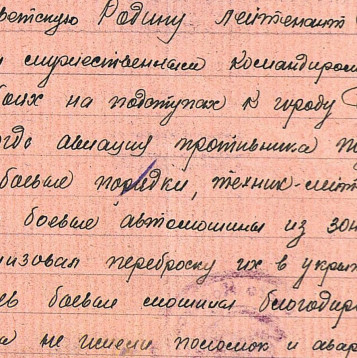 ветскую Родину лейтенант
и мужественным командиром
боях на подступах к городу
огда авиация противника по
боевые порядки, техник-лейт
боевые автомашины из зон
низовал переброску их в укрыт
ев боевые машины благодаря
а не имели поломок и авар